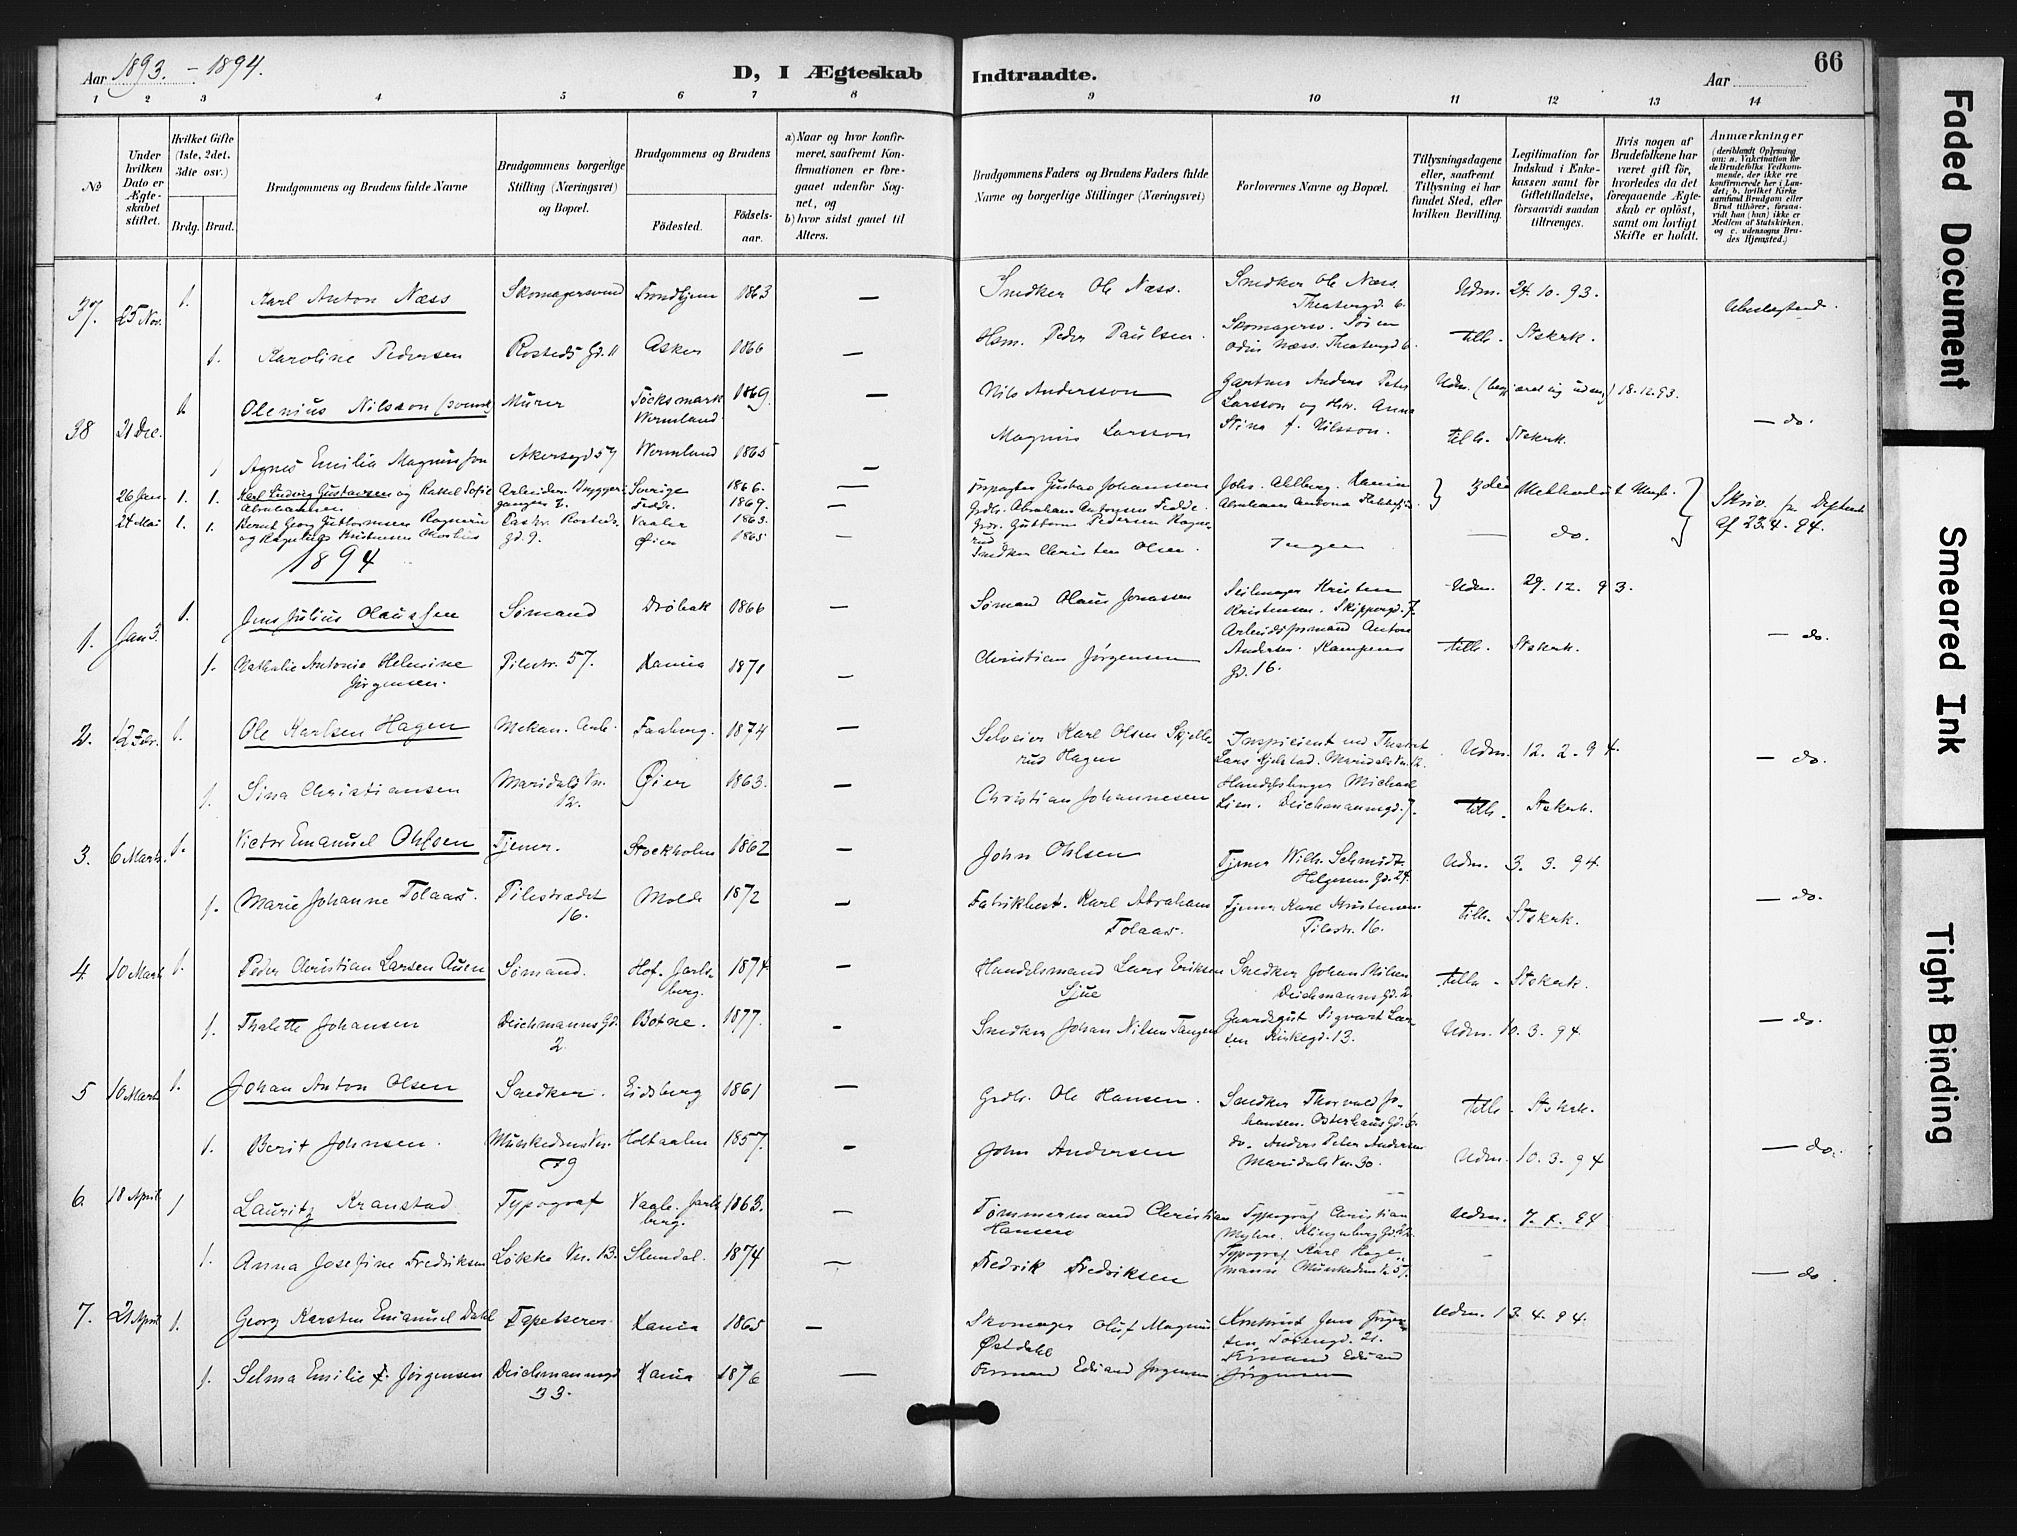 Aar 1893. - 1894.
D, I Ægteskab
Indtraadte.
Aar
66
1 2 3 4 5 6 7 8 9 10 11 12 13 14
No
Under hvilken Dato er Ægteskabet stiftet.
Hvilket Gifte (1ste, 2det, 3die osv.)
Brdg. Brud.
Brudgommens og Brudens fulde Navne
Brudgommens borgerlige Stilling (Næringsvei) og Bopæl.
Brudgommens og Brudens
Fødested.
Fødselsaar.
a) Naar og hvor konfirmeret, saafremt Konfirmationen er foregaaet udenfor Sognet, og
b) hvor sidst gaaet til Alters.
Brudgommens Faders og Brudens Faders fulde Navne og borgerlige Stillinger (Næringsvei)
Forlovernes Navne og Bopæl.
Tillysningsdagene eller, saafremt Tillysning ei har fundet Sted, efter hvilken Bevilling.
Legitimation for Indskud i Enkekassen samt for Giftetilladelse, forsaavidt saadan tiltrænges.
Hvis nogen af Brudefolkene har været gift før, hvorledes da det foregaaende Ægteskab er opløst, samt om lovligt Skifte er holdt.
Anmærkninger
(deriblandt Oplysning om: a. Vakcination for de Brudefolks Vedkommende, der ikke ere konfirmerede her i Landet; b. hvilket Kirkesamfund Brudgom eller Brud tilhører, forsaavidt han (hun) ikke er Medlem af Statskirken, og c. udensogns Brudes Hjemsted.)
37. 25 Nov. 1. Karl Anton Næss Skomagersvend Trondhjem 1863 — Snedker Ole Næss. Snedker Ole Næss. Theatergd. 6. Udm. 24. 10. 93.
1. Karoline Pedersen Rosteds Gd. 11 Asker 1866 — Hsm. Peder Paulsen. Skomagersv. Søren Odin Næss. Theatergd 6. till. Stskrk.
38 21 Dec. 1. Olenius Nilsson (svensk) Murer Töcksmark Wermland 1869. — Nils Andersson Gartner Anders Peter Larsson og Hstr. Anna Stina f. Nilsson. Udm. 18. 12. 93. — do.
1 Agnes Emilia Magnusson Akersgd 57 Wermland 1865 — Magnus Larsson till. Stskrk.
26 Jan. 1. 1. Karl Ludvig Gustavsen og Rakel Sofie Abrahamsen Sverige 1866. Fedde. 1869. — Gustav Johansson Johs. Ahlberg. Kania 3die Methodist Skriv. fr. Deptmt
24 Mai 1. 1. Bernt Georg Guttormsen Rognerud og Kristensen Past. Rosteds gd. 9. Vaaler 1863. Øier 1865 — Guttorm Pedersen Rognerud Snedker Christen Olsen. Ingen — do. af 23. 4. 94.
1894
1. Jan 3. 1. Jens Julius Olaussen Sømand Drøbak 1866 — Sømand Olaus Jonassen Seilmager Kristen Kristensen. Skippergd. 7. Udm. 29. 12. 93.
1. Nathalie Antonie Helmine Jørgensen. Pilestr. 57. Kania 1871 — Christian Jørgensen Arbeidsformand Anton Andersen. Kampens Gd. 16. till. Stskrk. — do.
2. 12 Febr. 1. Ole Karlsen Hagen Mekan. Arb. Faaberg. 1874 — Selveier Karl Olsen Skjellerud Hagen Inspicient ved Theatret Lars Gjelstad. Maridals Vn. 12. Udm. 12. 2. 94.
1. Sina Christiansen Maridals Vn. 12. Øier 1863. — Christian Johannesen Handelsborger Michael Lien. Deichmannsgd. 7. till. Stskrk. — do.
3. 6 Marts. 1. Victor Emanuel Ohlsen Tjener. Stockholm 1862 — John Ohlsen Tjener Wilh. Schmidt. Helgesens Gd. 24. Udm. 3. 3. 94
1. Marie Johanne Tolaas. Pilestrædet 16. Molde 1872 — Fabrikbest. Karl Abraham Tolaas. Tjener Karl Kristensen Pilestr. 16. till. Stskrk. — do.
4 10 Marts 1. Peder Christian Larsen Auen Sømand. Hof. Jarlsberg. 1874 — Handelsmand Lars Eriksen Sjue Snedker Johan Nilsen Deichmanns Gd. 2. till. Stskrk.
1. Thalette Johansen Deichmanns Gd. 2 Botne. 1877. — Snedker Johan Nilsen Tangen Gaardsgut Sigvart Larsen Kirkegd. 13. Udm. 10. 3. 94 — do.
5 10 Marts 1. Johan Anton Olsen Snedker. Eidsberg 1861 — Grdbr. Ole Hansen. Snedker Thorvald Johansen. Osterhaus Gd. 6. till. Stskrk.
1. Berit Johnsen. Munkedams Vn. 79 Holtaalen 1857. — John Andersen do. Anders Peter Andersen Maridals Vn. 30. Udm. 10. 3. 94 — do.
6. 18 April 1 Lauritz Kranstad Typograf Vaale. Jarlsberg. 1863. — Tømmermand Christian Hansen Typograf Christian Myhre. Klingenberg Gd. Udm. 7. 4. 94
1. Anna Josefine Fredriksen Løkke Vn. 13. Slemdal. 1874 — Fredrik Fredriksen Typograf Karl Hagemann Munkedams Vn. 57. — do.
7. 21 April 1. Georg Karsten Emanuel Dahl Tapetserer Kania 1865 — Skomager Oluf Magnus Østdahl Jens Jørgensen Torvengd. 21. Udm. 13. 4. 94.
1. Selma Emilie f. Jørgensen Deichmannsgd 33. Kania 1876 — Formand Edvard Jørgensen Formand Edvard Jørgensen
Faded Document
Smeared Ink
Tight Binding